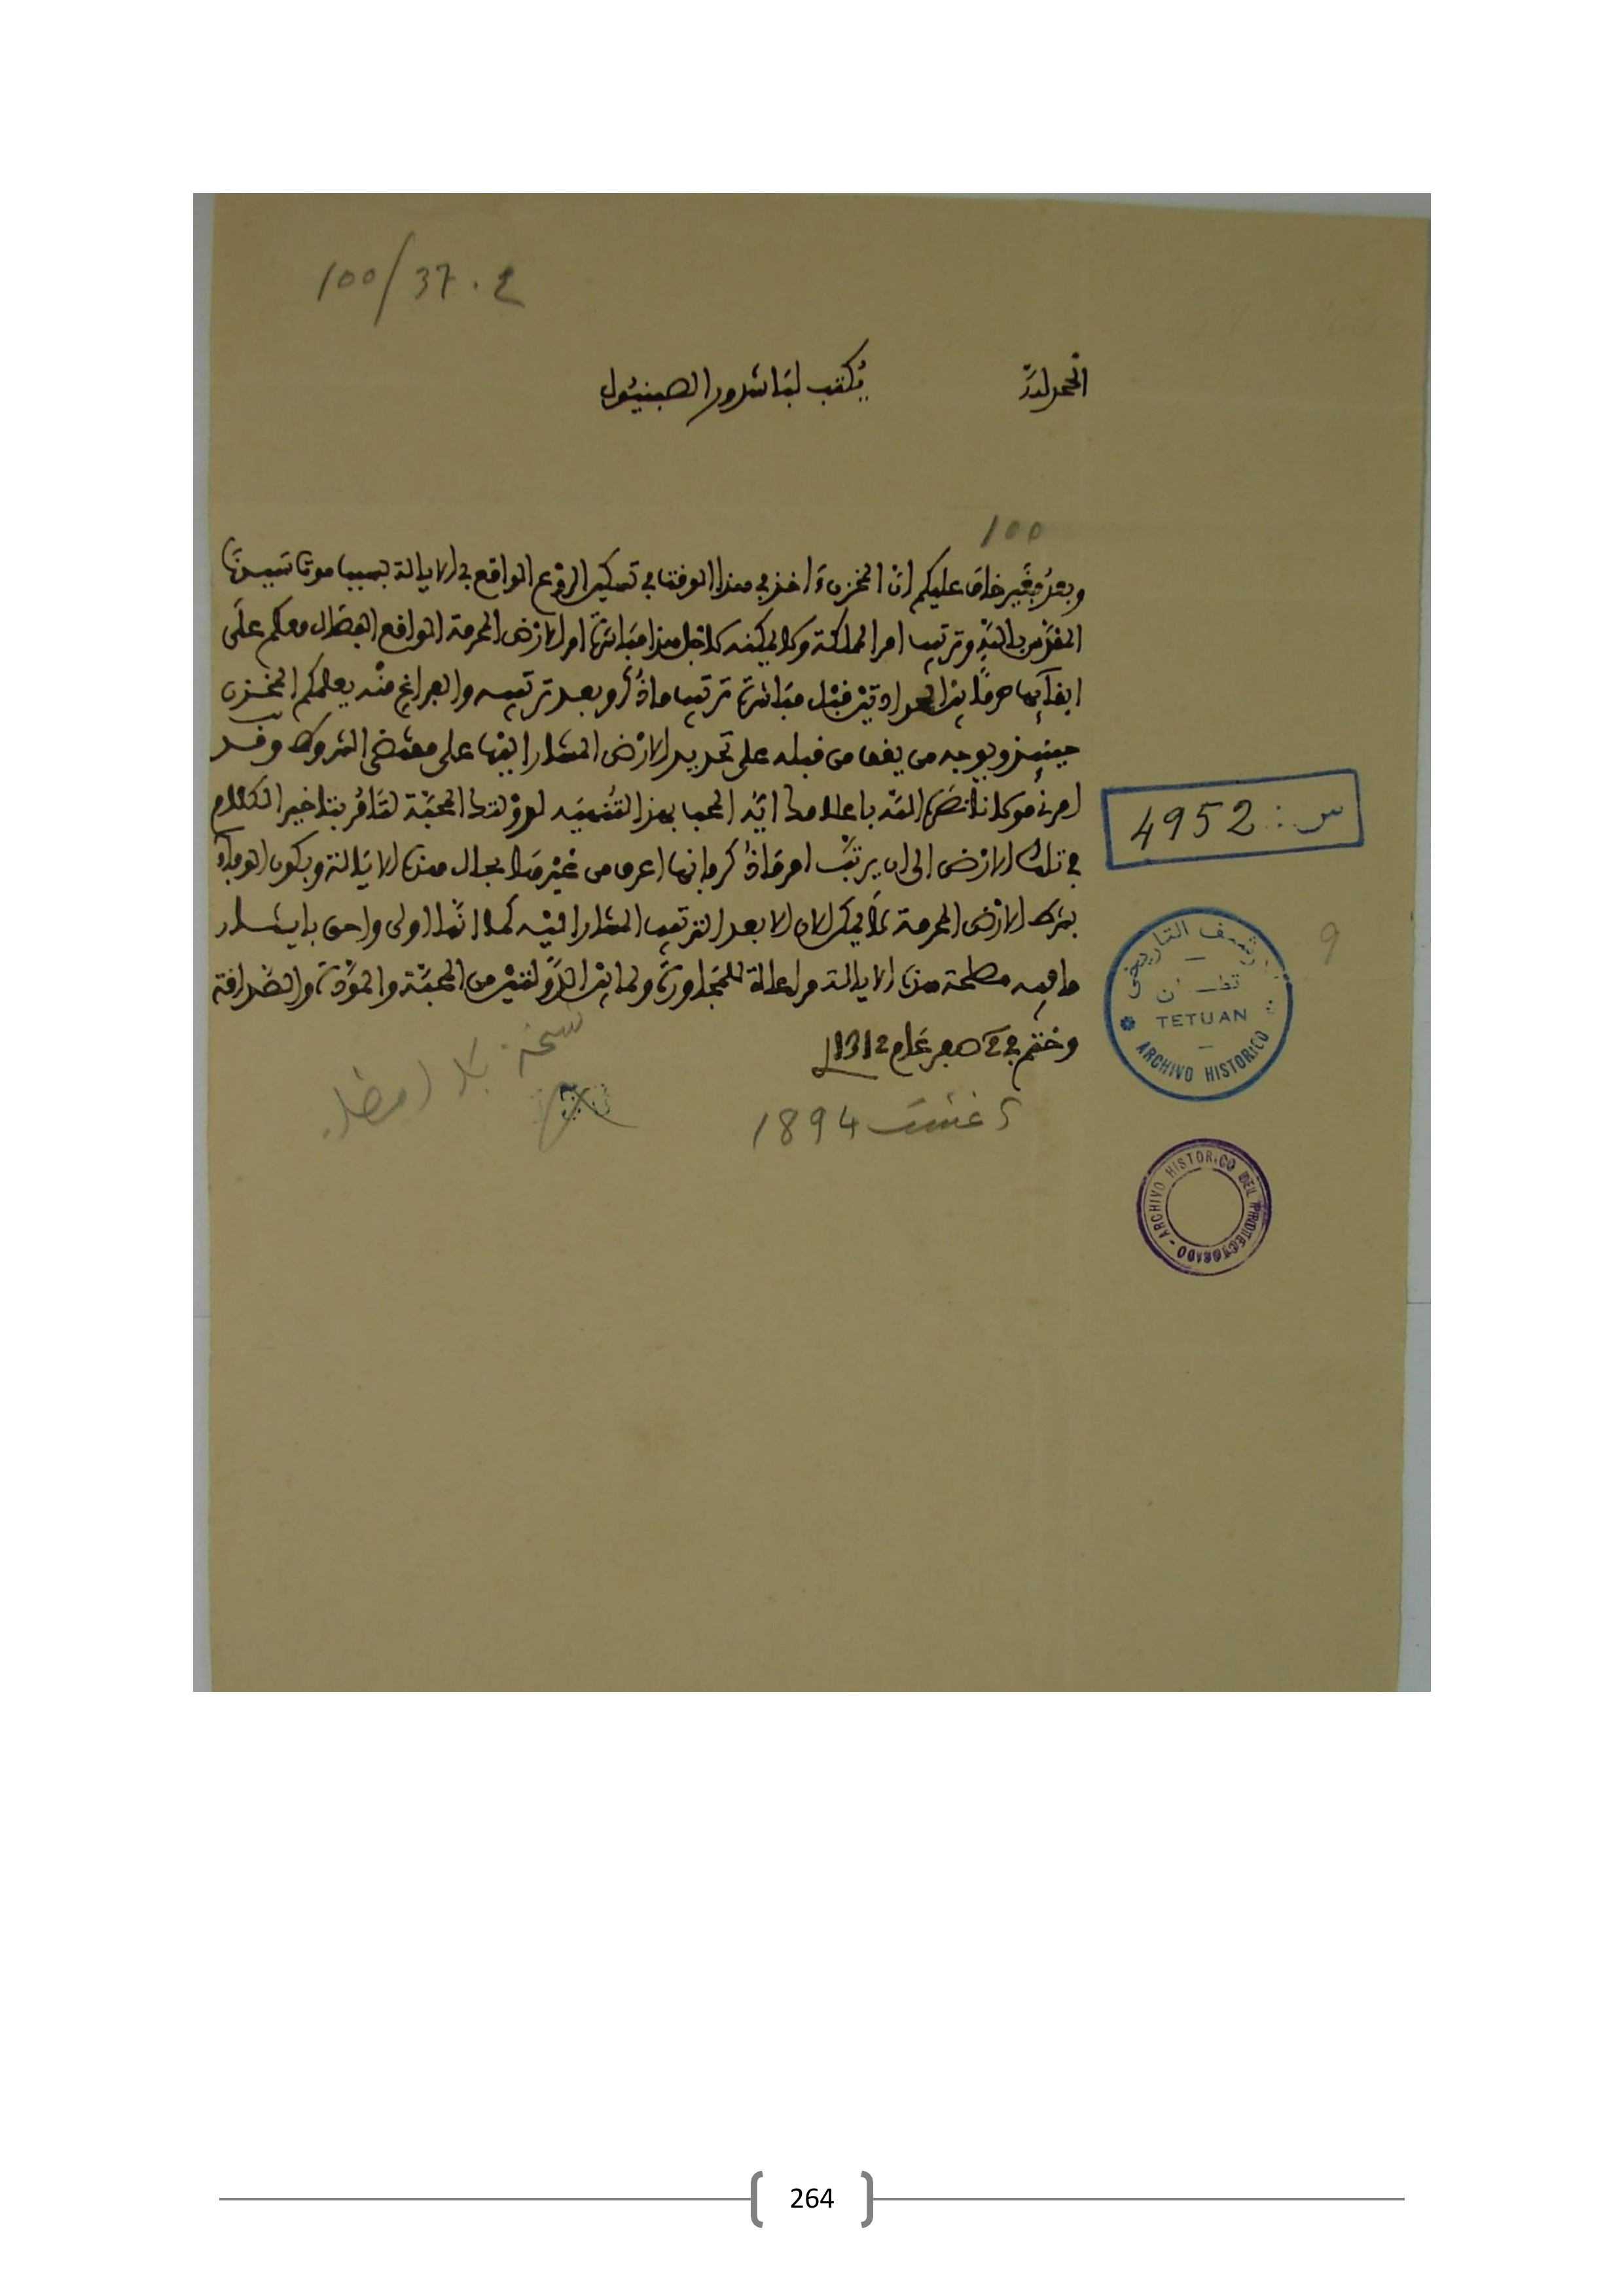 100/37.2
الحمد لله
يكتب لباشدور الصبنيول
100
وبعد فغير خاف عليكم ان المخزن اخذ في هذا الوقت في تسكين الروع الواقع في الايالة بسبب موت سيدنا
المقدس بالله وترتيب امر المملكة ولا يمكنه لاجل هذا مباشرة امر الارض المحرمة الواقع الفصال معكم على
ابقائها حرما بين قبل مباشرة ترتيب ما ذكر وبعد ترتيبه والفراغ منه يعلمكم المخزن
حينئذ ويوجه من يقف من قبله على تحديد الارض المشار اليها على مقتضى الشروط وقد
امرني مولانا نصره الله باعلامك ايه المحب بهذا لدولتك المحبة لتامر بتاخير الكلام
في تلك الارض الى ان يرتب امر ما ذكر فانها اعرف من غيرها بحال هذه الايالة ويكون الوفاء
بشرط الارض المحرمة لا يمكن الان الا بعد الترتيب المشار اليه كما انها اولى واحق بايثار
ما فيه مصلحة هذه الايالة مراعاة للمجاورة ولما بين الدولتين من المحبة والمودة والصداقة
وختم في 2 صفر عام 1312
5 غشت 1894
نسخة بلا امضاء
س: 4952
9
الارشيف التاريخي
تطوان
TETUAN
ARCHIVO HISTORICO
ARCHIVO HISTORICO DEL PROTECTORADO
264